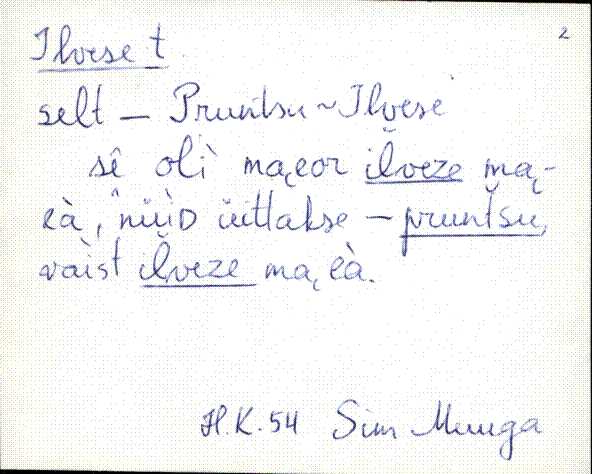 2
Ilvese t.
selt — Pruntsu ~ Ilvese
sê olì mą̀eor ilveze mą-
eà, nüìD üittakse — pruntsu,
vaist ilveze mą eà.
H.K. 54 Sim Muuga